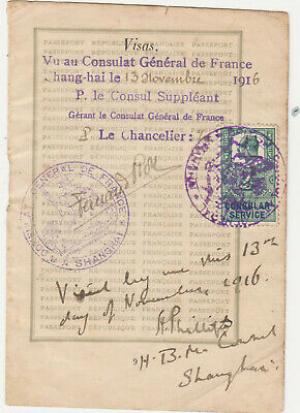 Visas.
Vu au Consulat Général de France
Shang-hai le 13 Novembre 1916
P. le Consul Suppléant
Gérant le Consulat Général de France
P Le Chancelier:
GENERAL DE FRANCE
SHANGHAI
CONSULAR
SERVICE
Visèd by me this 13th
day of November 1916.
H Phillips
H. B. M. Consul
Shanghai.